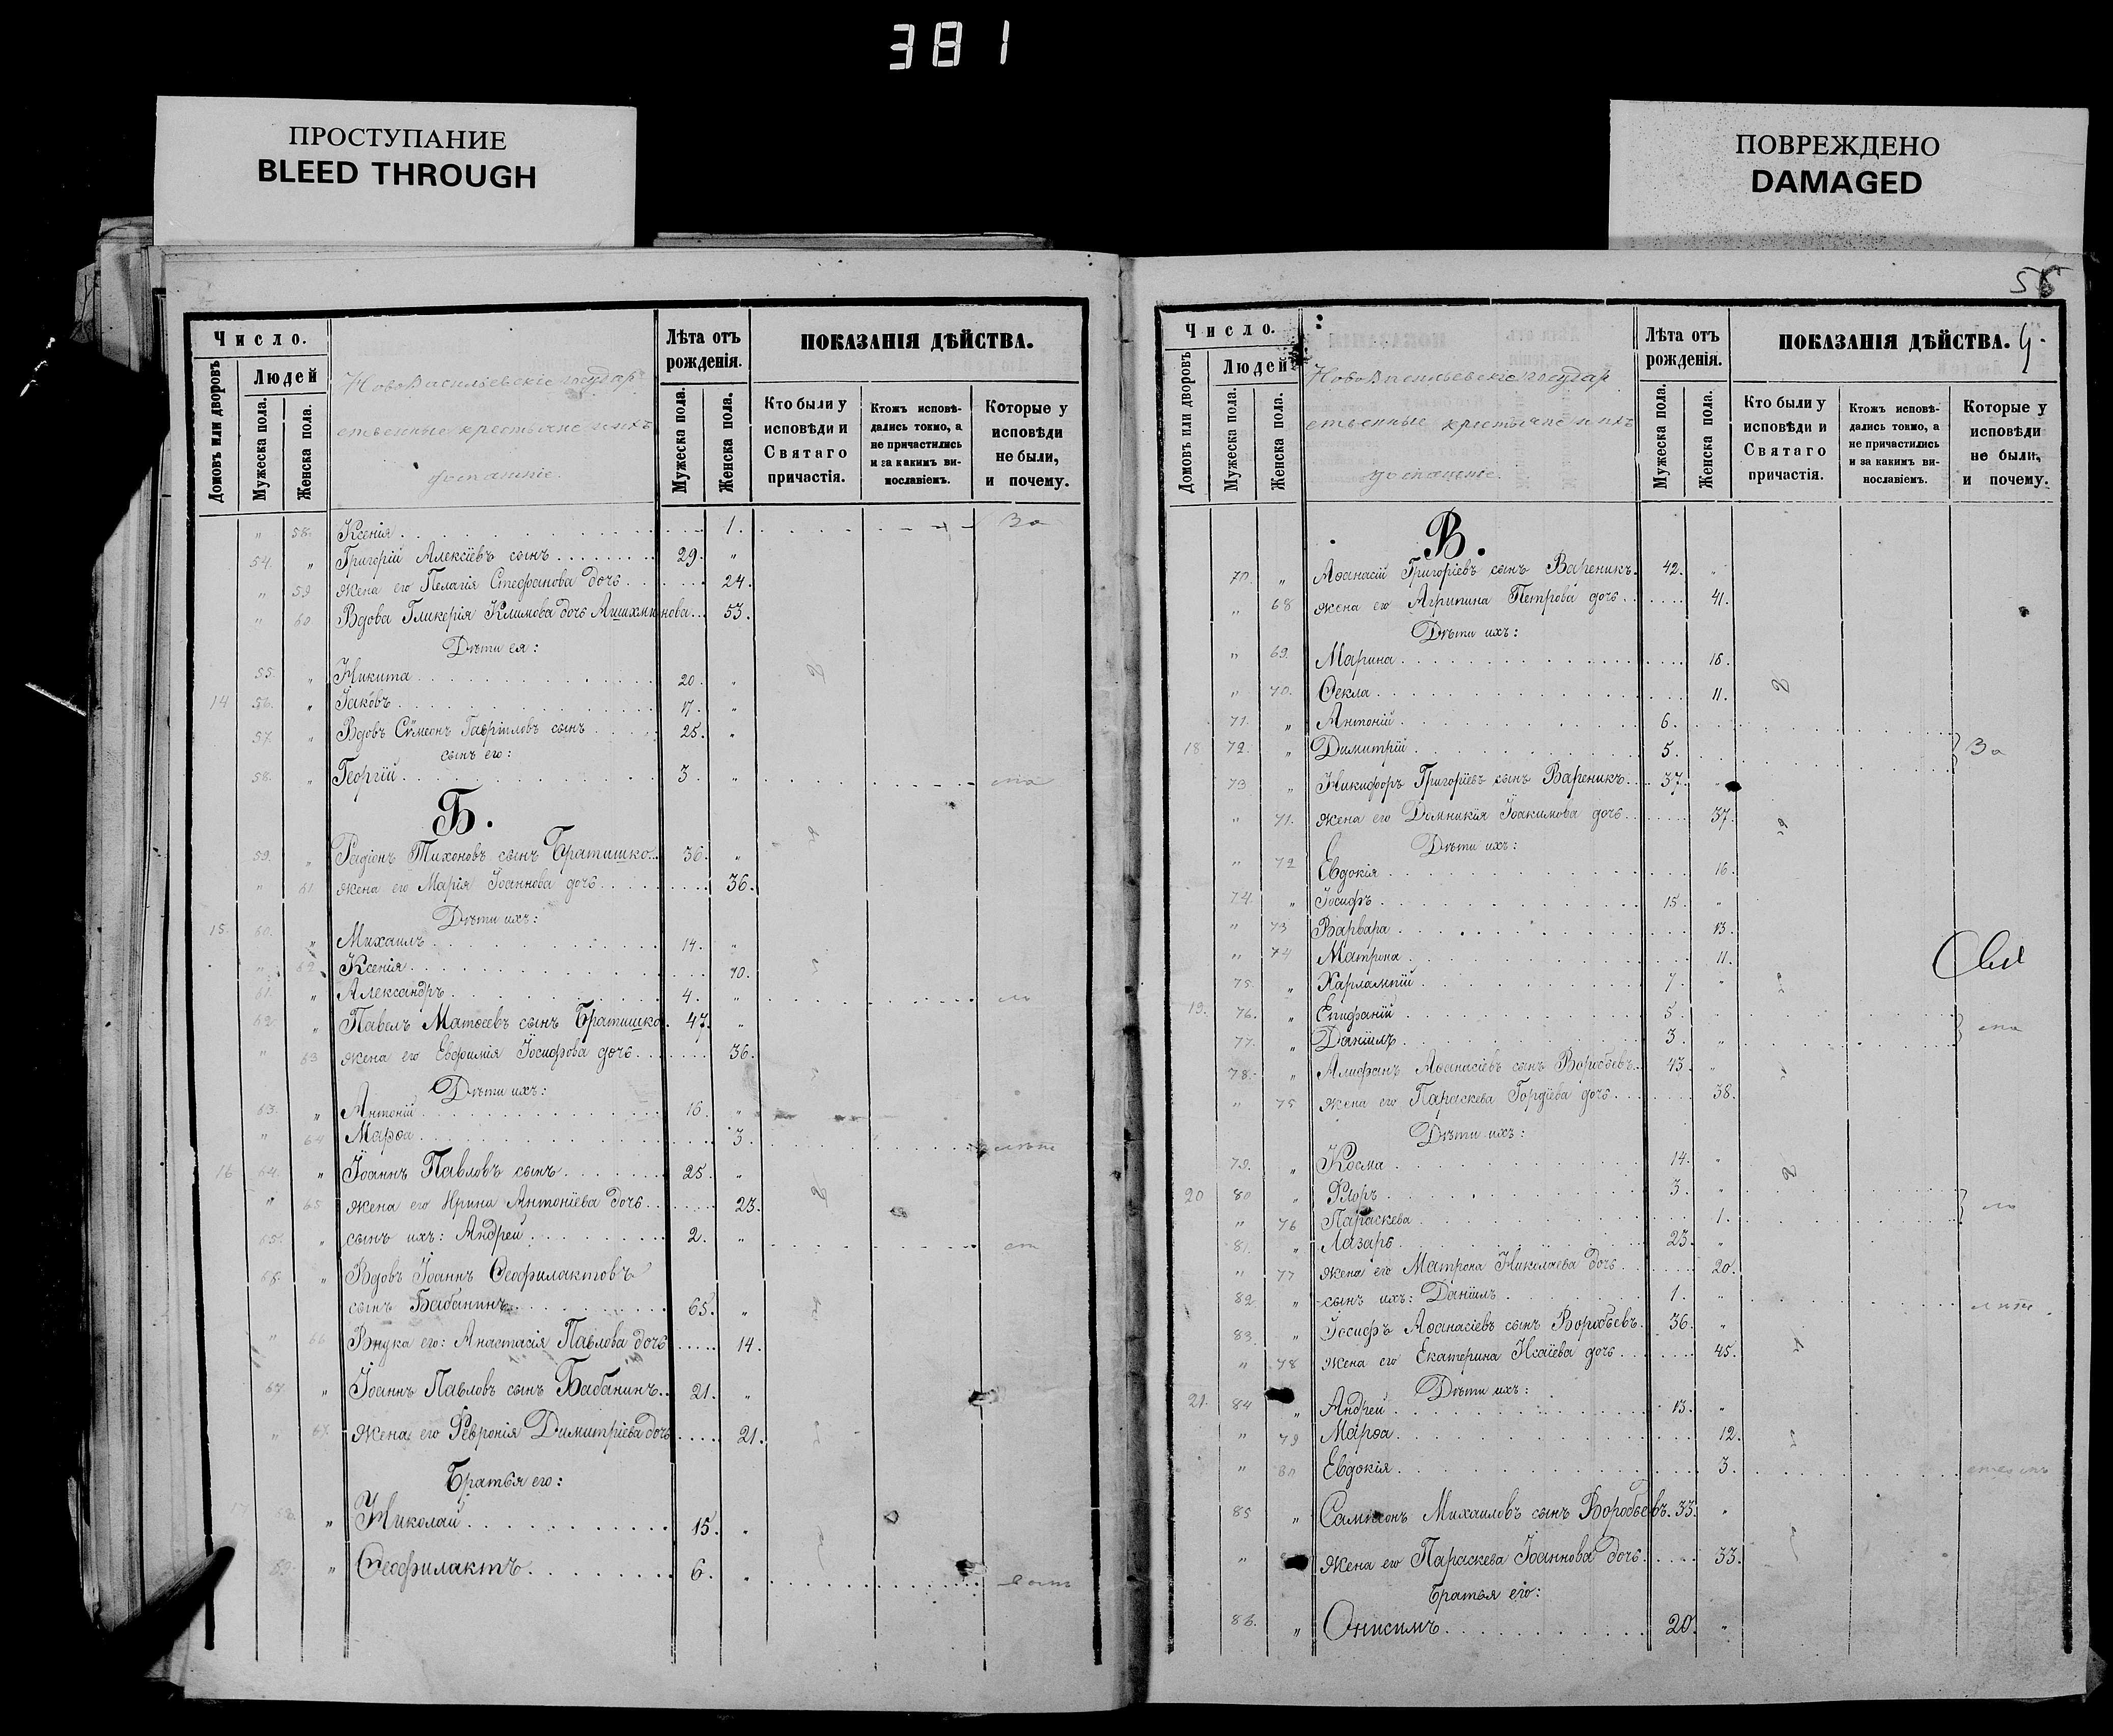 381
ПРОСТУПАНИЕ
BLEED THROUGH
ПОВРЕЖДЕНО
DAMAGED
Число.
Домовъ или дворовъ
Людей
Мужеска пола.
Женска пола.
НовоВасильевскіе государ
ственные крестьяне и ихъ
Лѣта отъ рожденія.
Мужеска пола.
Женска пола.
ПОКАЗАНІЯ ДѢЙСТВА.
Кто были у исповѣди и Святаго причастія.
Ктожъ исповѣ-дались токмо, а не причастились и за какимъ ви-нославіемъ.
Которые у исповѣди не были, и почему.
" 58. Ксенія 1. За
54. " Григорій Алексіевъ сынъ 29. "
" 59 жена его Пелагія Стефанова дочь 24.
" 60 Вдова Гликерія Климова дочь 53.
Дѣти ея:
55. " Никита 20. "
14 56. " Іаковъ 17. "
57. " Вдовъ Сѵмеонъ Гавріиловъ сынъ 25. "
сынъ его:
58. " Георгій 3. "
Б.
59. " Радіонъ Тихоновъ сынъ Братишко 36. "
" 61 жена его Марія Іоаннова дочь 36.
Дѣти ихъ:
15. 60. " Михаилъ 14. "
" 62 Ксенія 10.
61. " Александръ 4. " ло
62 " Павелъ Матѳеевъ сынъ Братишко. 47. "
" 63 жена его Евфимія Іосифова дочь 36.
Дѣти ихъ:
63. " Антоній 16. "
" 64 Марѳа 3.
16 64. " Іоаннъ Павловъ сынъ 25. "
" 65 жена его Ирина Антоніева дочь 23.
65. " сынъ ихъ: Андрей 2. "
66. " Вдовъ Іоаннъ Ѳеофилактовъ
сынъ Бабанинъ 65. "
" 66 Внука его: Анастасія Павлова дочь 14.
67. " Іоаннъ Павловъ сынъ Бабанинъ.. 21. "
" 67. Жена его Февронія Димитріева дочь 21.
Братья его:
17 68. " Николай 15. "
69. " Ѳеофилактъ 6. "
56
Число.
Домовъ или дворовъ
Людей
Мужеска пола.
Женска пола.
НовоВасильевскіе государ
ственные крестьяне и ихъ
Лѣта отъ рожденія.
Мужеска пола.
Женска пола.
ПОКАЗАНІЯ ДѢЙСТВА.
Кто были у исповѣди и Святаго причастія.
Ктожъ исповѣ-дались токмо, а не причастились и за какимъ ви-нославіемъ.
Которые у исповѣди не были, и почему.
В.
70. " Аѳанасій Григоріевъ сынъ Вареникъ. 42. "
" 68 жена его Агрипина Петрова дочь 41.
Дѣти ихъ:
" 69. Марина
" 70. Ѳекла 11.
71. " Антоній 6.
18 72. " Димитрій 5. За
73 " Никифоръ Григоріевъ сынъ Вареникъ 37. "
" 71. жена его Домникія Іоакимова дочь 37.
Дѣти ихъ:
" 72 Евдокія 16.
74. " Іосифъ 15. "
" 73 Варвара 13.
" 74 Матрона 11.
75. " Харлампій 7. "
19. 76. " Епифаній 5.
77. " Даніилъ 3. "
78. " Алифанъ Аѳанасіевъ сынъ Воробьевъ. 43. "
" 75 жена его Параскева Гордіева дочь 38.
Дѣти ихъ:
79. " Косма 14. "
20 80 " Флоръ 3. "
" 76 Параскева 1. ло
81. " Лазарь 23. "
" 77 жена его Матрона Николаева дочь 20.
82. " сынъ ихъ: Даніилъ 1. "
83. " Іосифъ Аѳанасіевъ сынъ Воробьевъ. 36. "
" 78 жена его Екатерина Исаіева дочь 45.
Дѣти ихъ:
21. 84 " Андрей 13. "
" 79 Марѳа 12.
" 80 Евдокія 3.
85 " Михаиловъ сынъ Воробьевъ. 33. "
" жена его Параскева Іоаннова дочь 33.
Братья его:
86. " Онисимъ 20. "